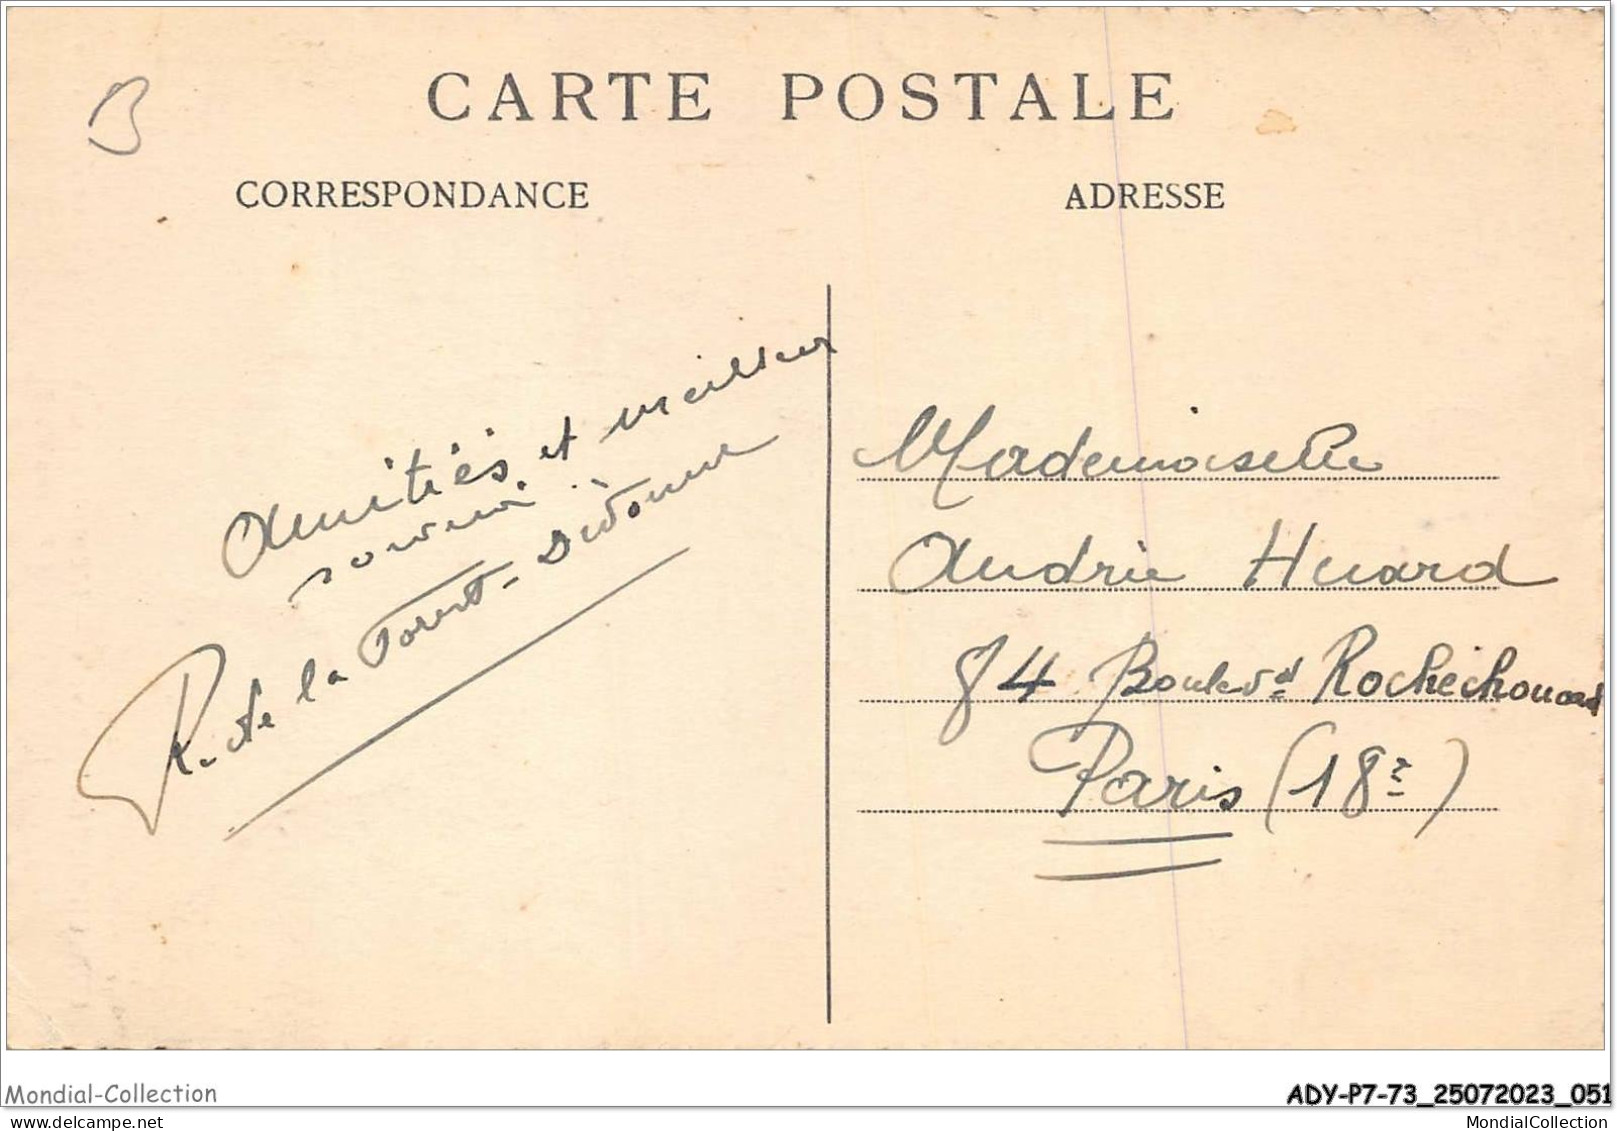 B
CARTE POSTALE
CORRESPONDANCE
ADRESSE
Amitiés et meilleur
souvenir
R. de la Forest-Divonne
Mademoiselle
Andrée Huard
84 Boulevd Rochechouard
Paris (18e)
Mondial-Collection
ADY-P7-73_25072023_051
MondialCollection